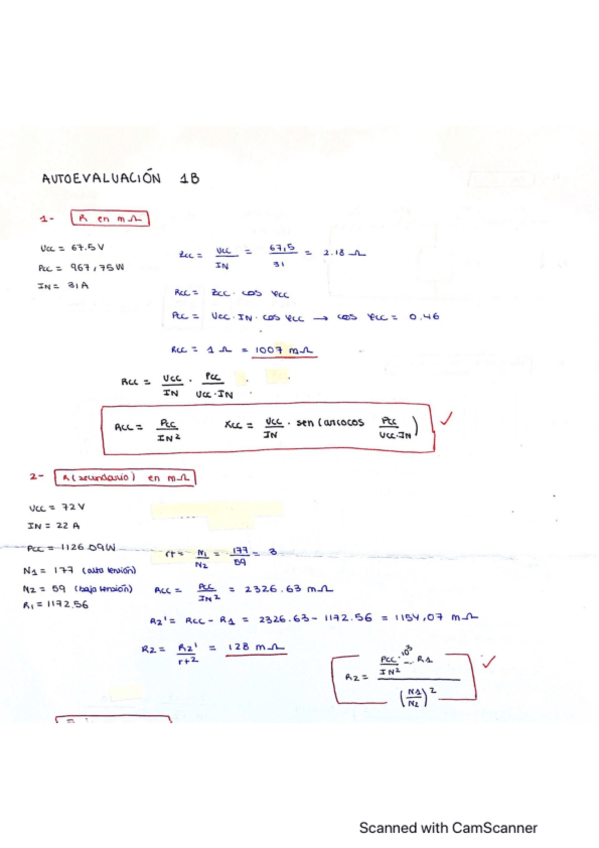 AUTOEVALUACIÓN 1B
1- R en mΩ
Vcc = 67.5 V
Pcc = 967,75 W
IN = 31 A
Zcc = Vcc / IN = 67,5 / 31 = 2.18 Ω
Rcc = Zcc · cos φcc
Pcc = Vcc · IN · cos φcc → cos φcc = 0.46
Rcc = 1 Ω = 1007 mΩ
Rcc = Vcc / IN · Pcc / Vcc · IN
Rcc = Pcc / IN² Xcc = Vcc / IN · sen (arcocos Pcc / Vcc·IN) ✓
2- R (secundario) en mΩ
Vcc = 72 V
IN = 22 A
Pcc = 1126.09 W
N1 = 177 (alta tensión)
N2 = 59 (baja tensión)
R1 = 1172.56
rt = N1 / N2 = 177 / 59 = 3
Rcc = Pcc / IN² = 2326.63 mΩ
R2' = Rcc - R1 = 2326.63 - 1172.56 = 1154,07 mΩ
R2 = R2' / rt2 = 128 mΩ
R2 = Pcc / IN² · 10³ - R1 / (N1 / N2)² ✓
Scanned with CamScanner